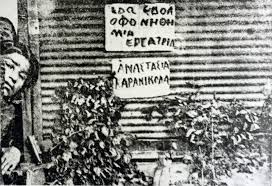 ΕΔΩ ΕΔΟΛ
ΟΦΟΝΗΘΗ
ΜΙΑ
ΕΡΓΑΤΡΙΑ
ΑΝΑΣΤΑΣΙΑ
ΚΑΡΑΝΙΚΟΛΑ